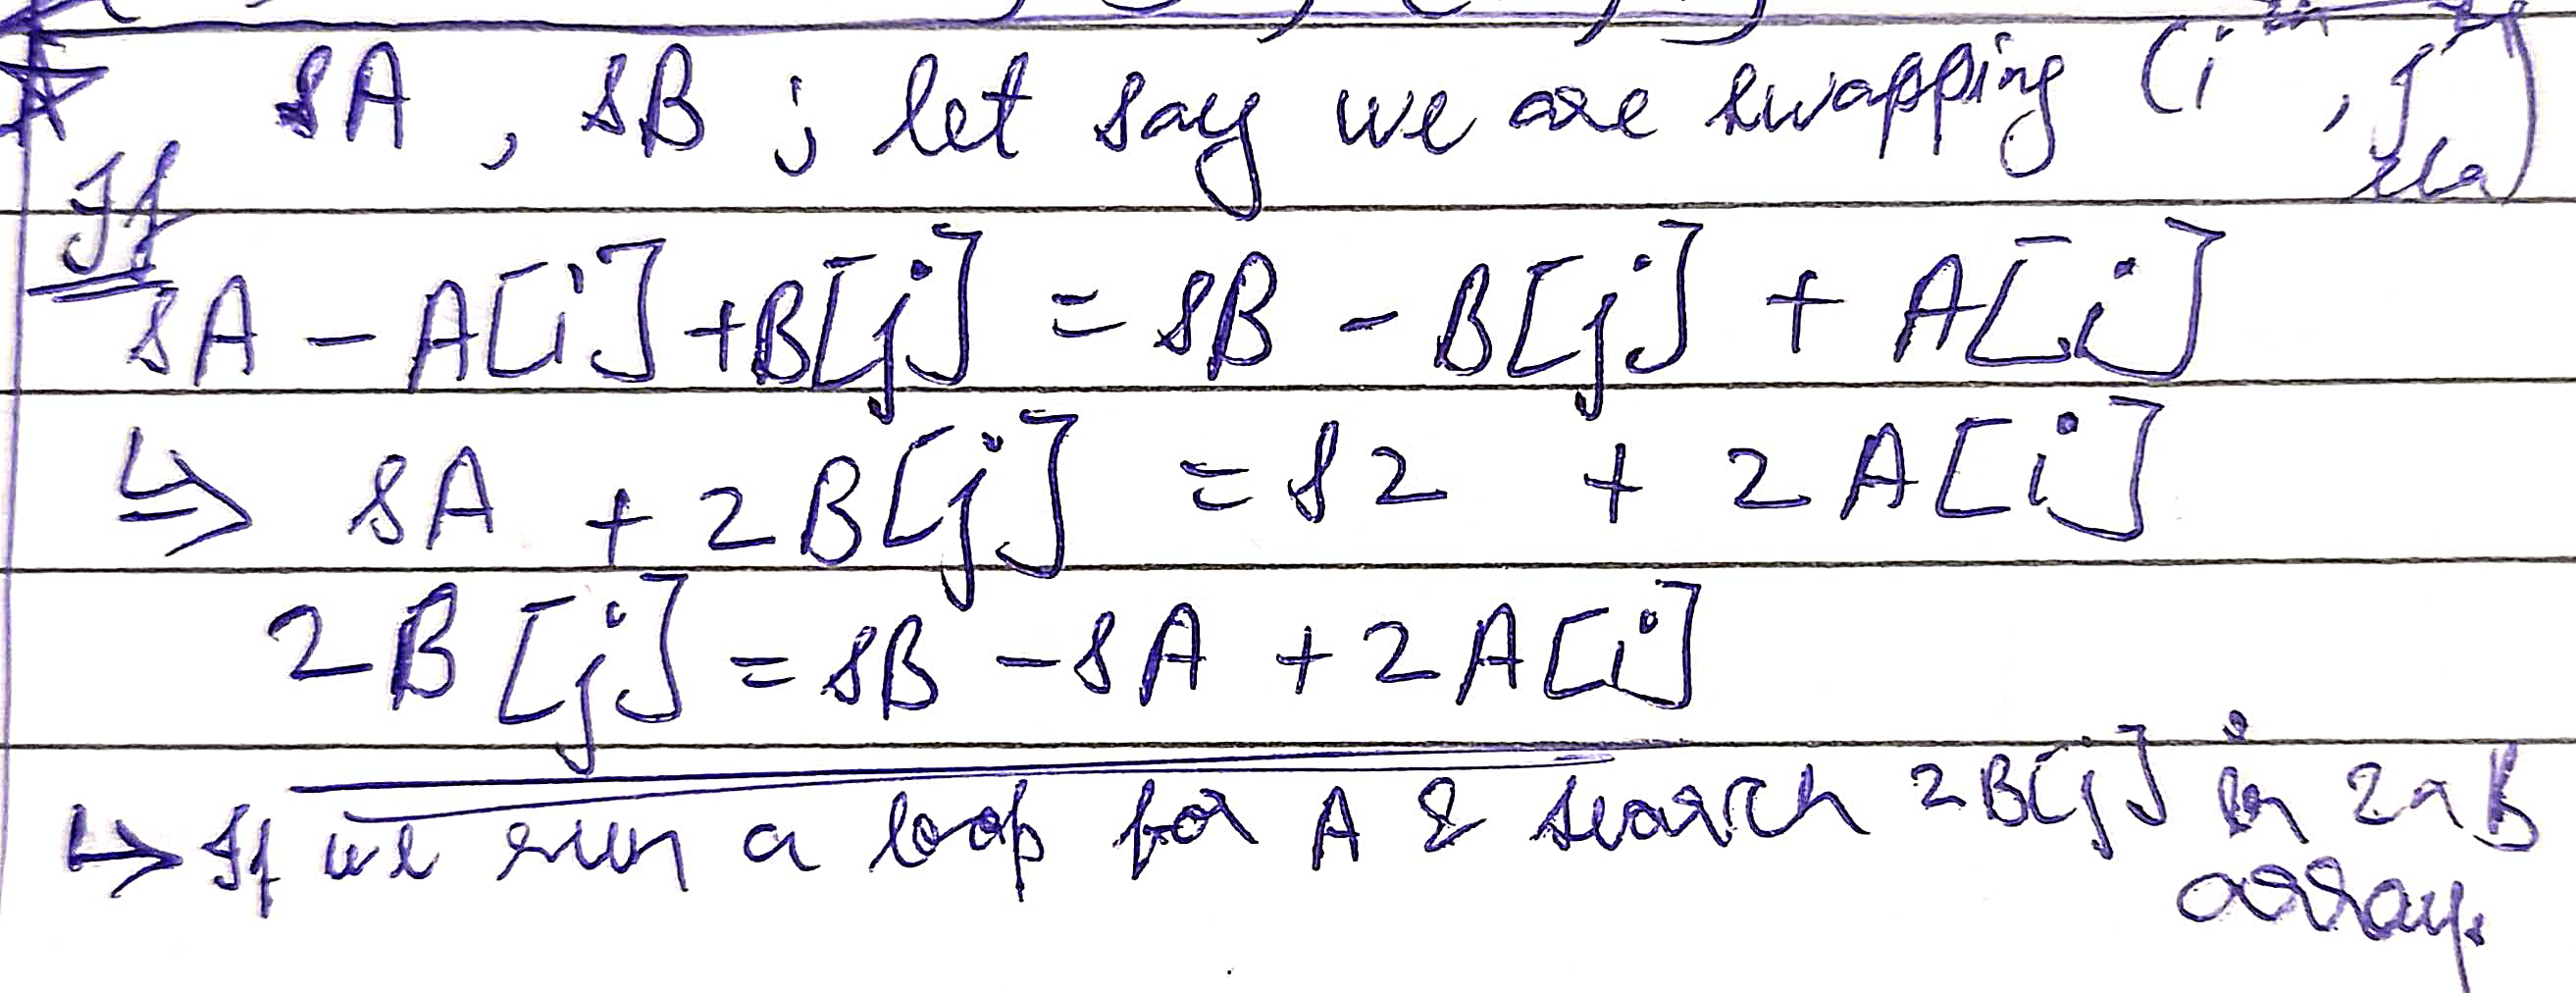 SA, SB ; let say we are swapping (i, j)
If
SA - A[i] + B[j] = SB - B[j] + A[i]
↳ SA + 2B[j] = S2 + 2A[i]
2B[j] = SB - SA + 2A[i]
↳ If we run a loop for A & search 2B[j] in B
array.